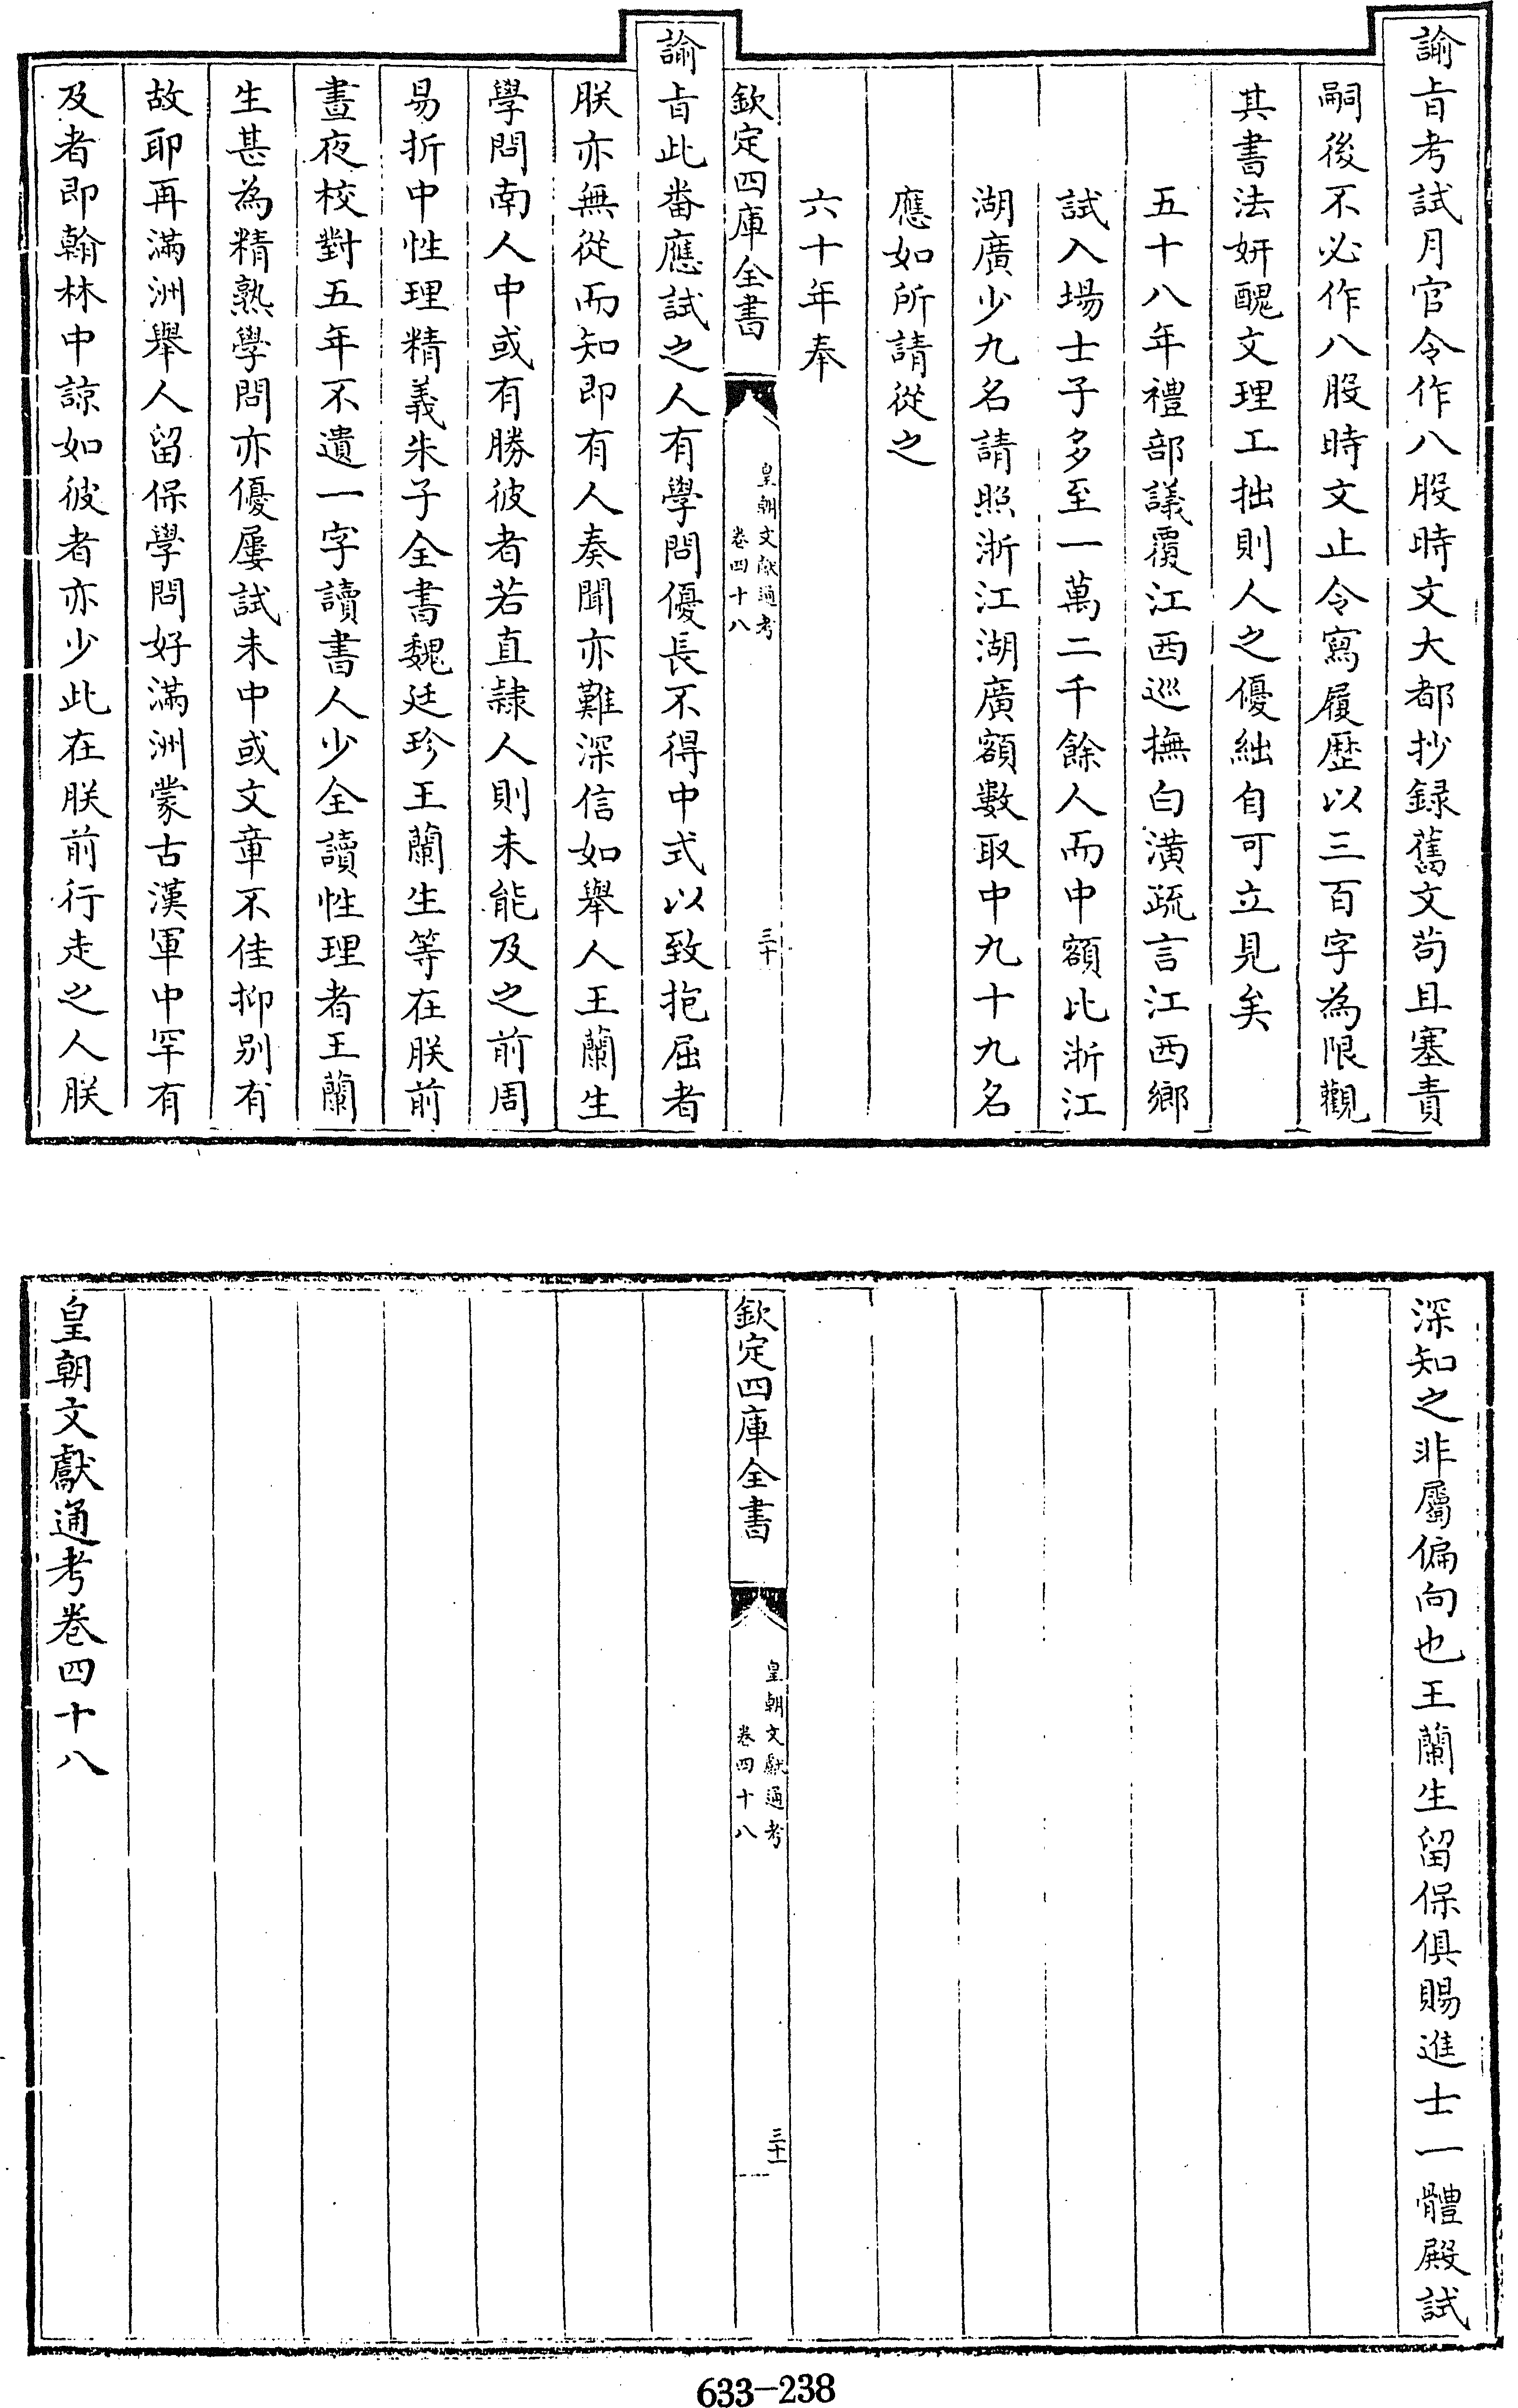 諭旨考試月官令作八股時文大都抄録舊文苟且塞責
嗣後不必作八股時文止令寫履歷以三百字為限觀
其書法妍醜文理工拙則人之優絀自可立見矣
五十八年禮部議覆江西巡撫白潢疏言江西鄉
試入場士子多至一萬二千餘人而中額比浙江
湖廣少九名請照浙江湖廣額數取中九十九名
應如所請從之
六十年奉
欽定四庫全書
皇朝文獻通考
卷四十八
三十
諭旨此番應試之人有學問優長不得中式以致抱屈者
朕亦無從而知即有人奏聞亦難深信如舉人王蘭生
學問南人中或有勝彼者若直隸人則未能及之前周
易折中性理精義朱子全書魏廷珍王蘭生等在朕前
晝夜校對五年不遺一字讀書人少全讀性理者王蘭
生甚為精熟學問亦優屢試未中或文章不佳抑別有
故耶再滿洲舉人留保學問好滿洲蒙古漢軍中罕有
及者即翰林中諒如彼者亦少此在朕前行走之人朕
深知之非屬偏向也王蘭生留保俱賜進士一體殿試
欽定四庫全書
皇朝文獻通考
卷四十八
三十一
皇朝文獻通考卷四十八
633-238